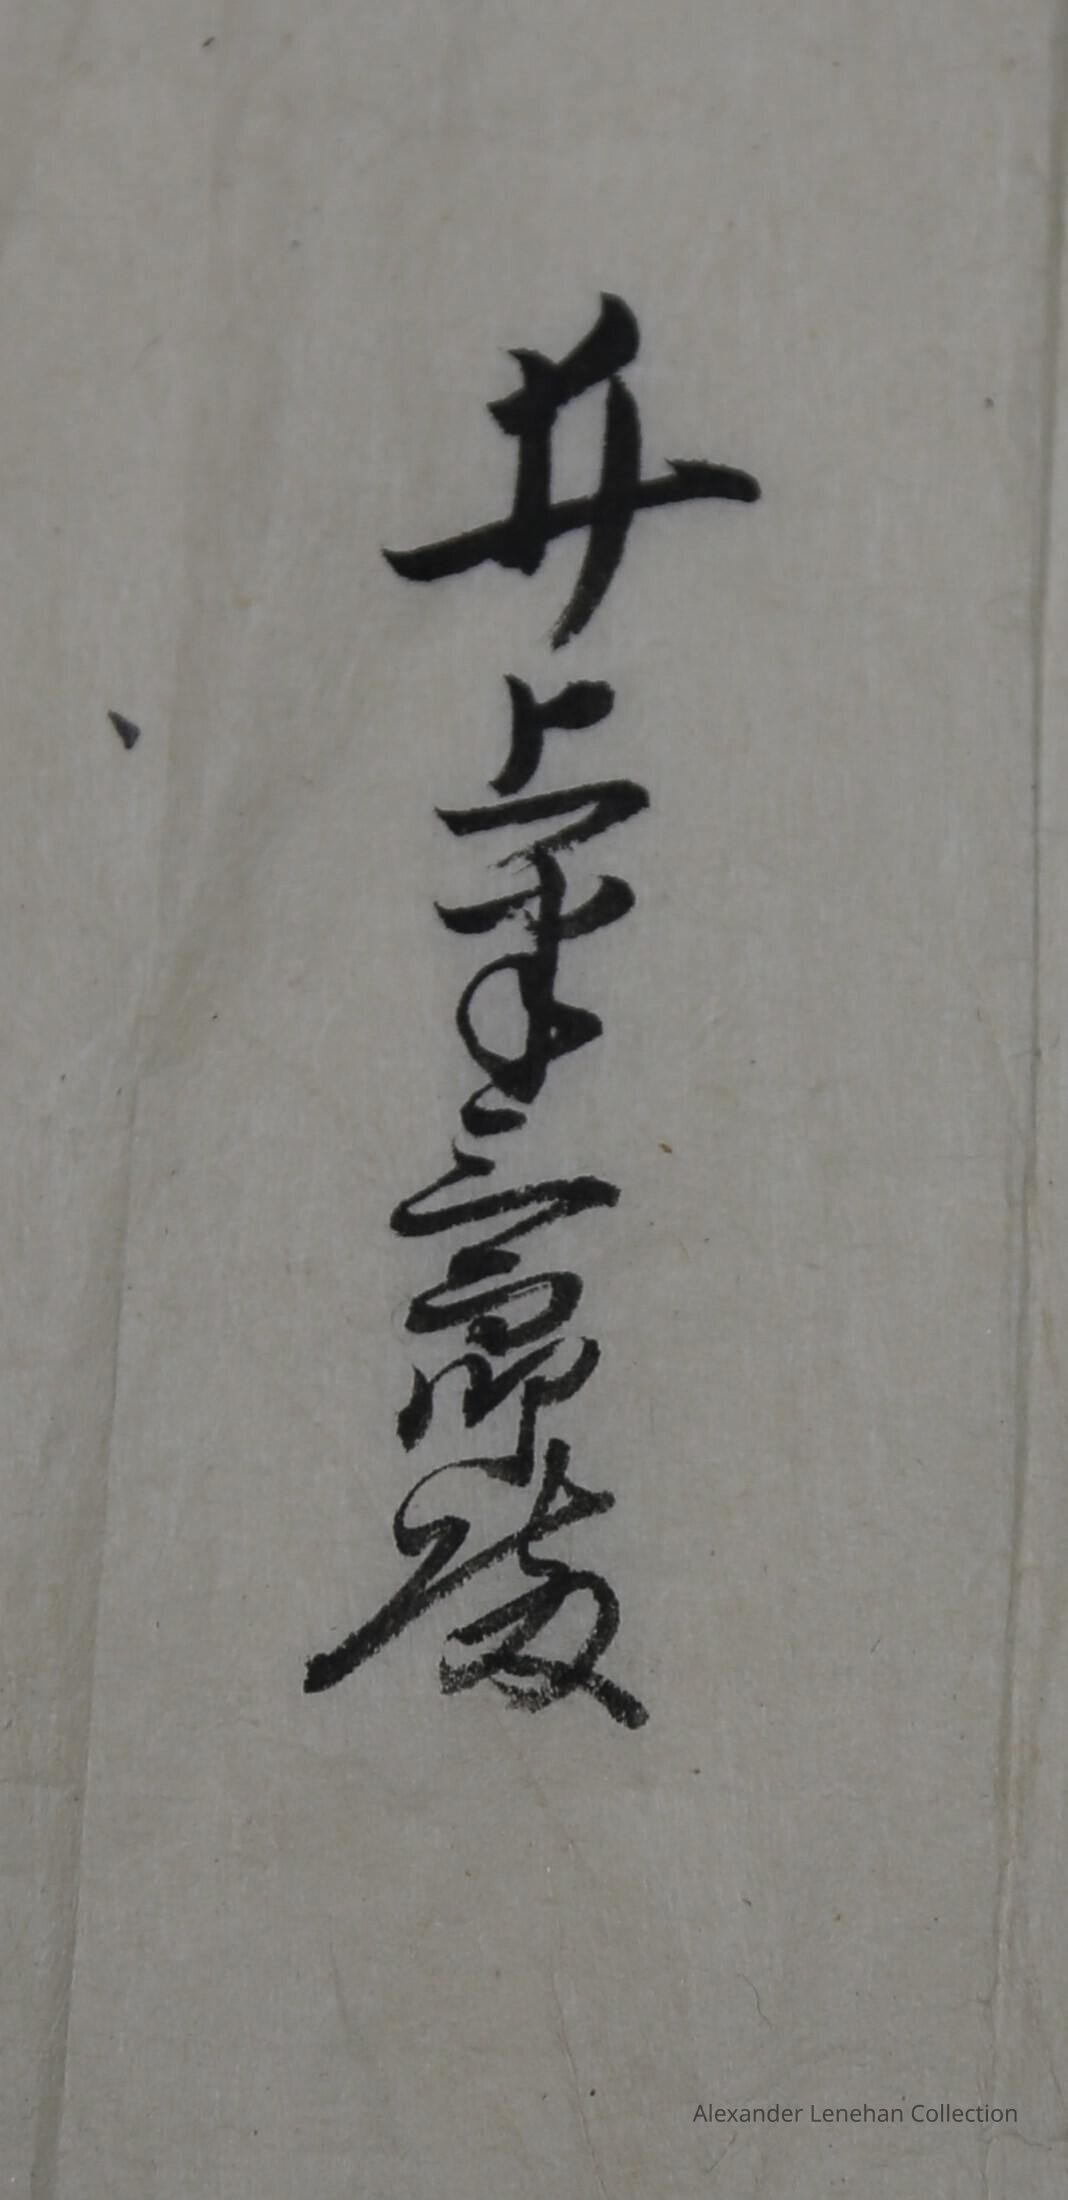 井上平三郎殿
Alexander Lenehan Collection